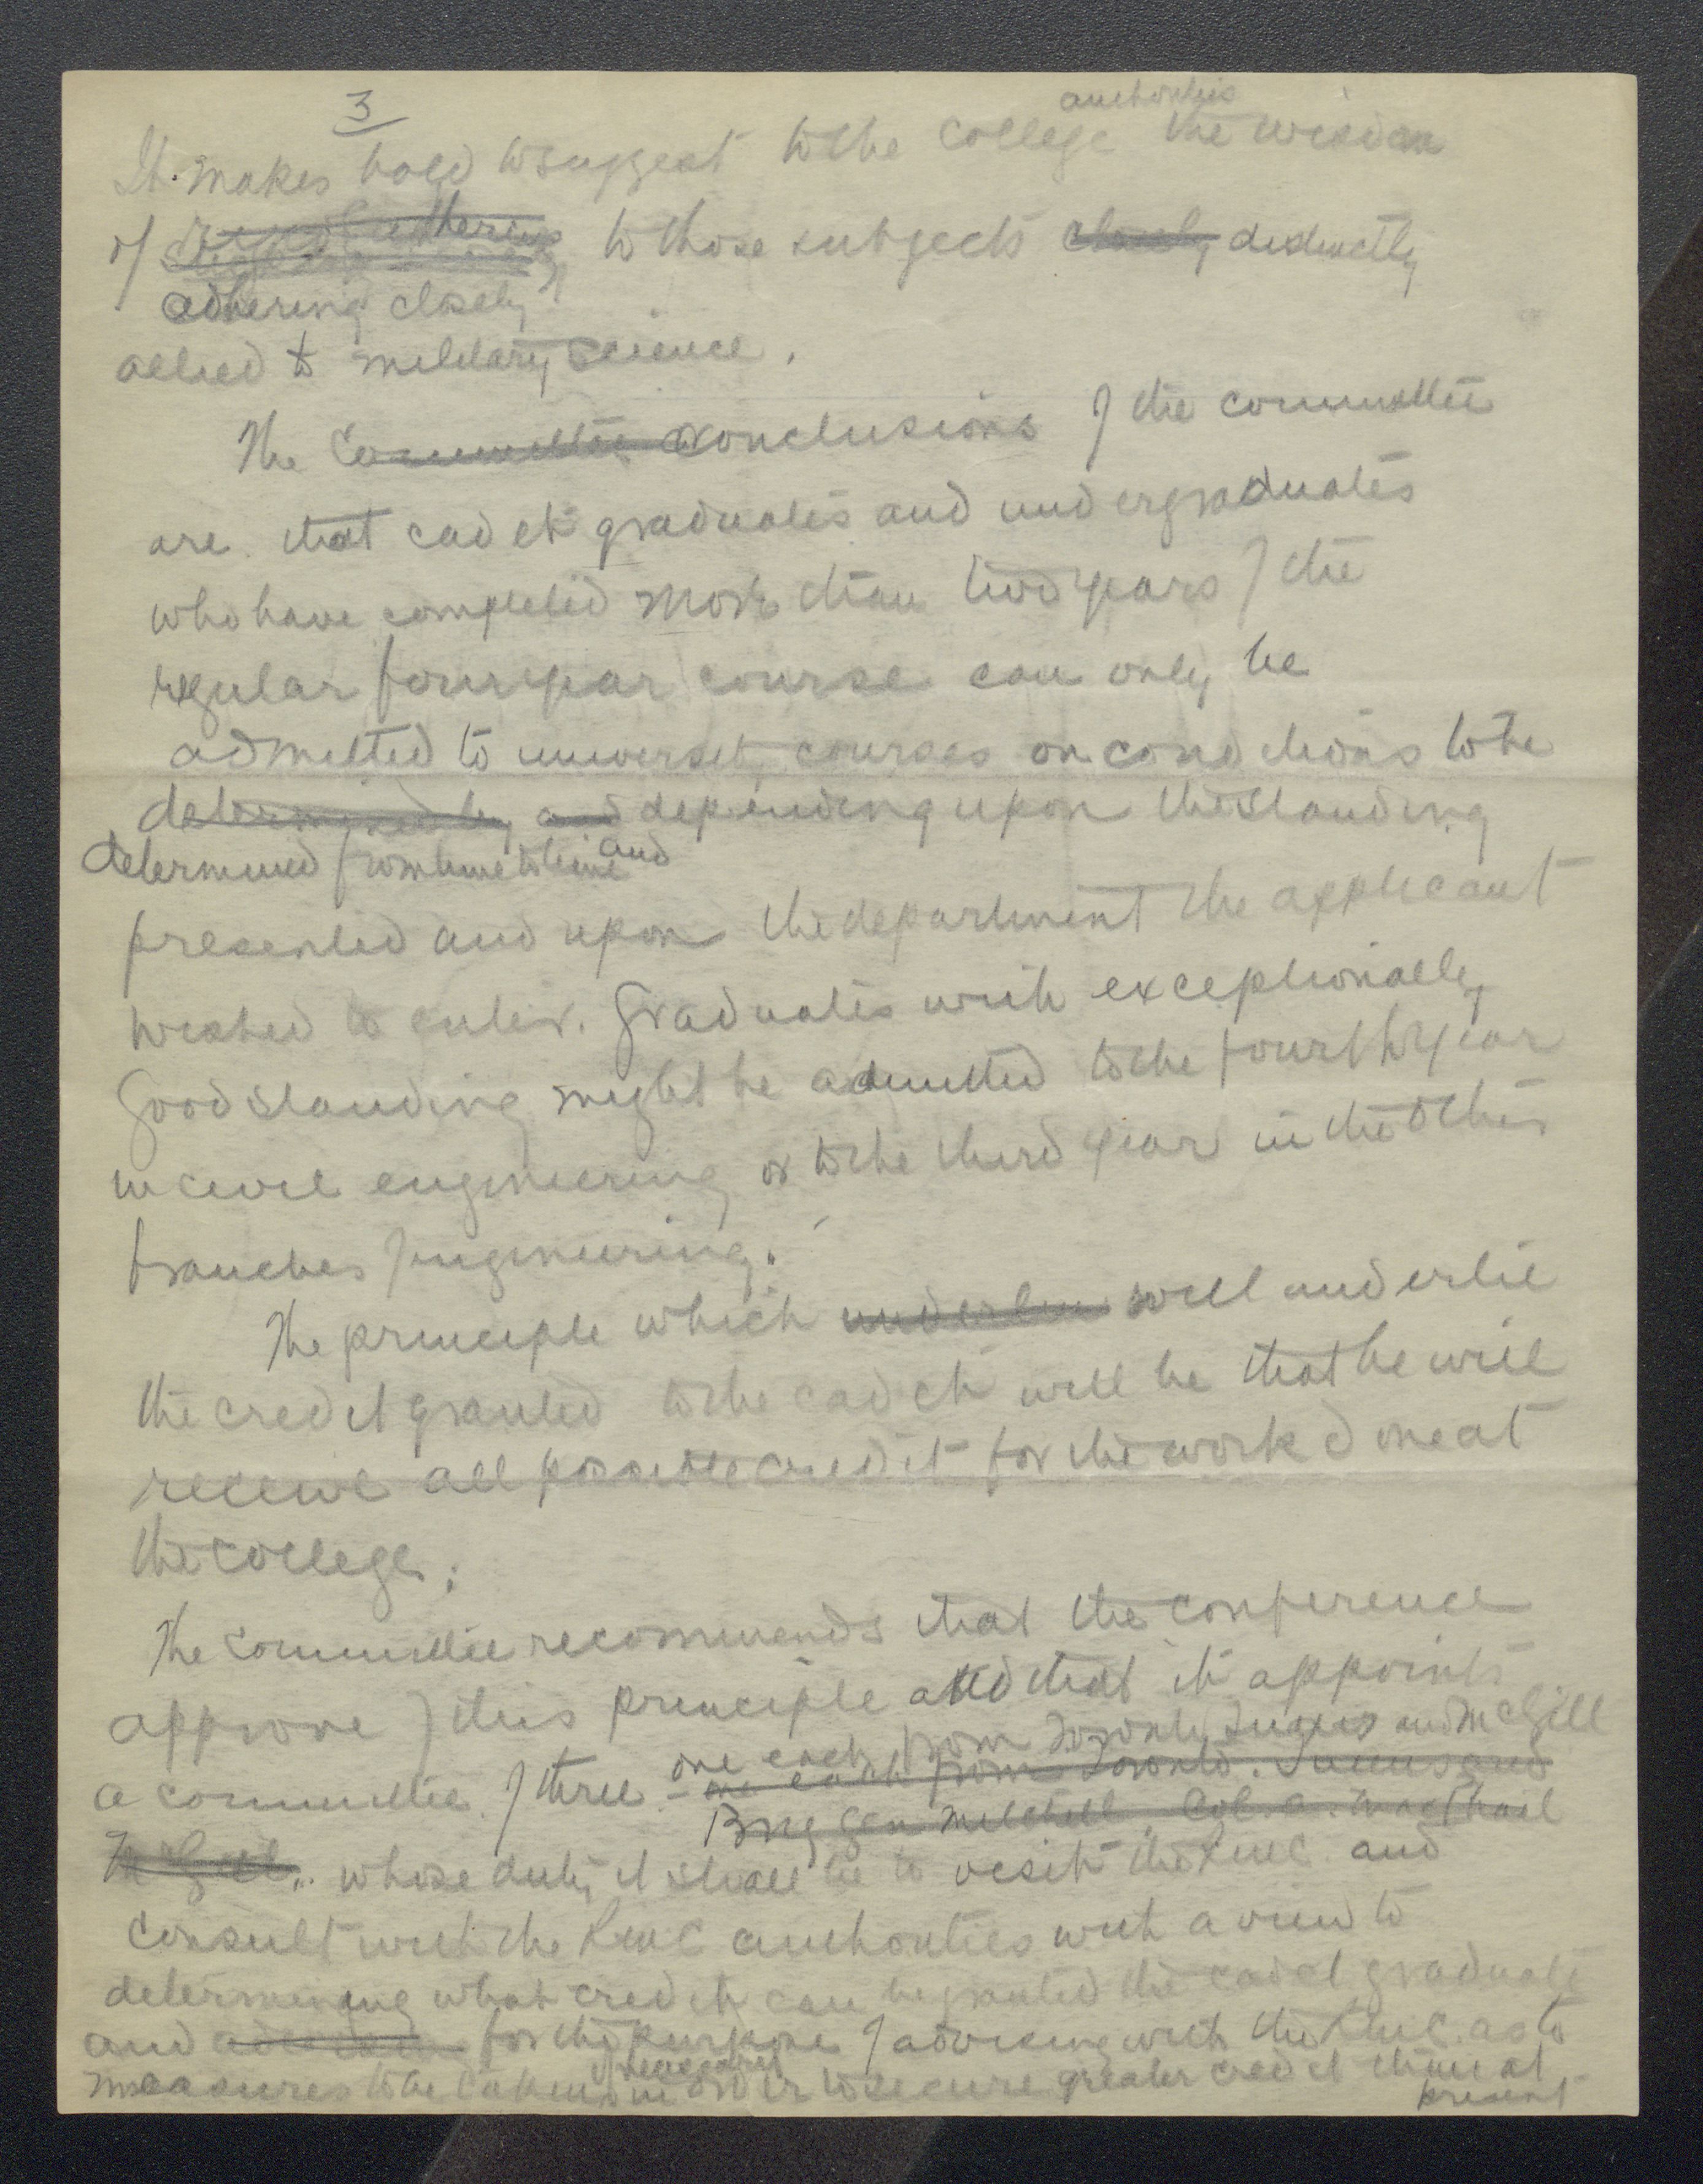 3
authorities
It makes bold to suggest to the college the wisdom
of to those subjects closely distinctly
adhering closely
allied to military science.
The Committee conclusions of the committee
are that cadet graduates and undergraduates
who have completed more than two years of the
regular four year course can only be
admitted to university courses on conditions to be
determined by and depending upon the standing
determined from time to time and
presented and upon the department the applicant
wished to enter. Graduates with exceptionally
good standing might be admitted to the fourth year
in civil engineering or to the third year in the other
branches of engineering.
The principle which underlies will underlie
the credit granted to the cadet will be that he will
receive all possible credit for the work done at
the college.
The committee recommends that the conference
approve of this principle and that it appoints
one each from Toronto, Queens and McGill
a committee of three - one each from Toronto. Queens and
Brig Gen Mitchell. Col. A. MacPhail
McGill.. whose duty it shall be to visit the RMC and
consult with the RMC authorities with a view to
determining what credit can be granted the cadet graduate
and for the purpose of advising with the RMC. as to
if necessary
measures to be taken in order to secure greater credit than at
present